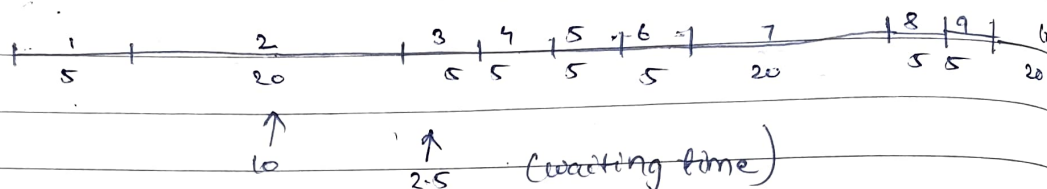 1 2 3 4 5 6 7 8 9
5 20 5 5 5 5 20 5 5 20
↑ ↑
10 2.5 (waiting time)